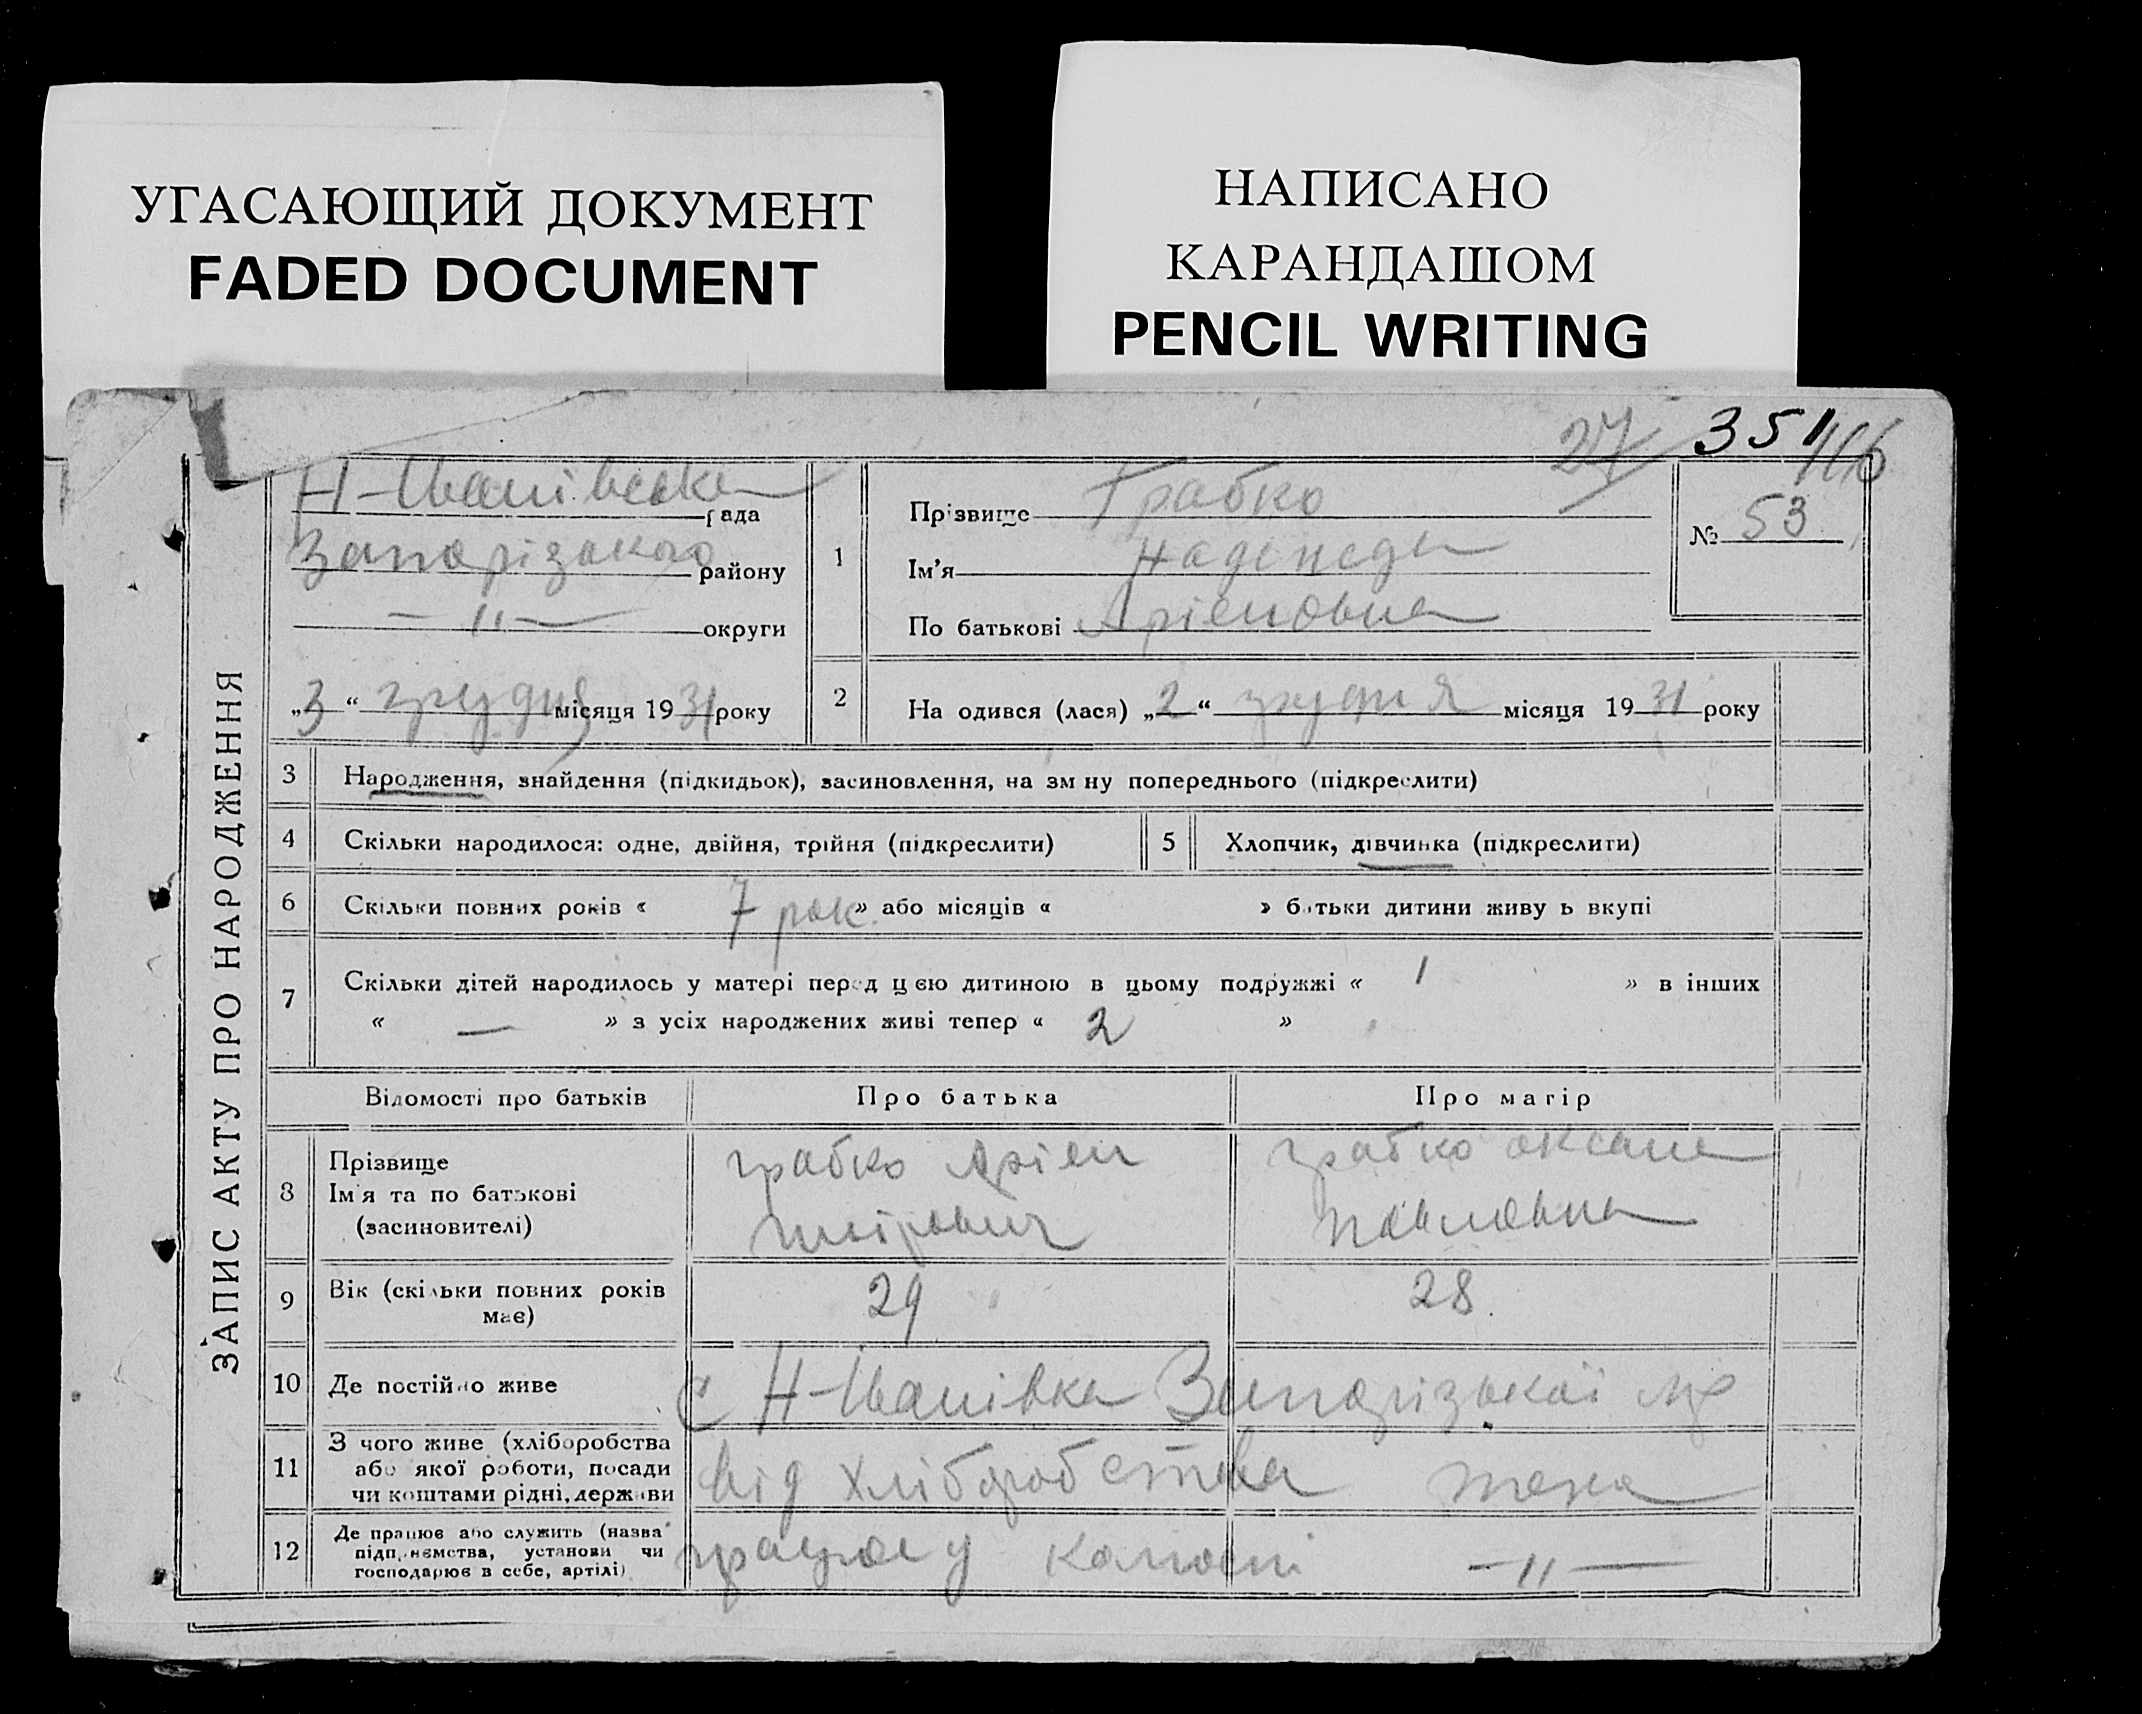 УГАСАЮЩИЙ ДОКУМЕНТ
FADED DOCUMENT
НАПИСАНО
КАРАНДАШОМ
PENCIL WRITING
27 351 116
ЗАПИС АКТУ ПРО НАРОДЖЕННЯ
Н-Иванівська рада
Запорізького району
— " — округи
„3“ грудня місяця 1931 року
1 Прізвище Грабко
Ім'я Надежда
По батькові
№ 53
2 На одився (лася) „2“ грудня місяця 1931 року
3 Народження, знайдення (підкидьок), засиновлення, на зм ну попереднього (підкреслити)
4 Скільки народилося: одне, двійня, трійня (підкреслити) 5 Хлопчик, дівчинка (підкреслити)
6 Скільки повних років « 7 рок. » або місяців « » батьки дитини живу ь вкупі
7 Скільки дітей народилось у матері перед ц ею дитиною в цьому подружжі « 1 » в інших
« — » з усіх народжених живі тепер « 2 »
Відомості про батьків Про батька Про матір
8 Прізвище
Ім'я та по батькові
(засиновителі)
грабко
грабко оксана
Павловна
9 Вік (скільки повних років
має)
29 28
10 Де постійно живе с Н-Иванівка Запорізької
11 З чого живе (хліборобства
або якої роботи, посади
чи коштами рідні, держави
від хліборобства тожа
12 Де працює або служить (назва
підприємства, установи чи
господарює в себе, артілі)
працює у — " —